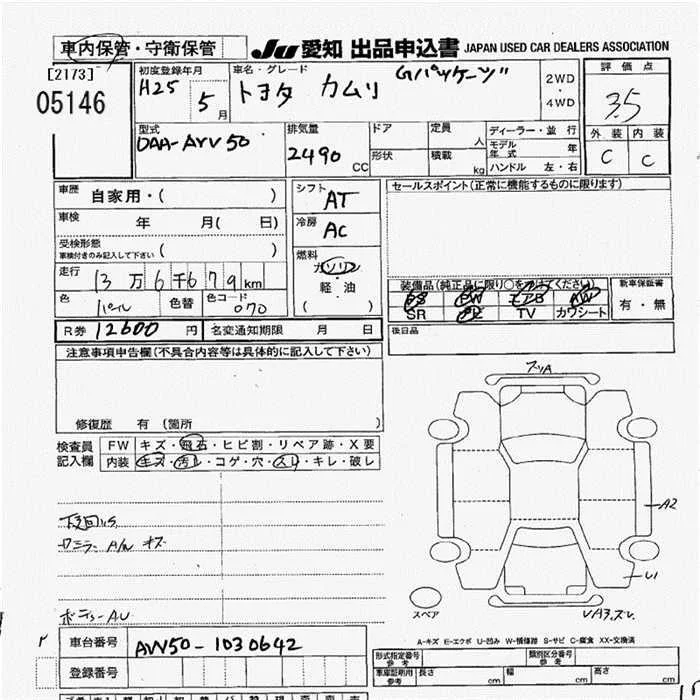 車内保管・守衛保管
JU 愛知 出品申込書 JAPAN USED CAR DEALERS ASSOCIATION
[2173]
05146
初度登録年月
H25 5月
車名・グレード
トヨタ カムリ Gパッケージ
2WD・4WD
評価点
3.5
外装 内装
C C
型式
DAA-AVV50
排気量
2490 CC
ドア
形状
定員 人
積載 kg
ディーラー・並行
モデル年式 年
ハンドル 左・右
車歴 自家用・( )
車検 年 月( 日)
受検形態
車検付きのみ記入して下さい ( )
走行 13万6千679km
色 パール 色替 色コード 070
R券 12600円 名変通知期限 月 日
シフト AT
冷房 AC
燃料
ガソリン
軽・油
( )
セールスポイント(正常に機能するものに限ります)
装備品(純正品に限り○をつけてください)
PS PW エアB AW
SR TV カワシート
新車保証書
有・無
後日品
注意事項申告欄(不具合内容等は具体的に記入して下さい)
修復歴 有 (箇所 )
検査員記入欄
FW キズ・飛石・ヒビ割・リペア跡・X要
内装 キズ・汚レ・コゲ・穴・スレ・キレ・破レ
下回りS
ワミラー A/W キズ
ボディーAU
A2
U1
スペア
A-キズ E-エクボ U-凹み W-補修跡 S-サビ C-腐食 XX-交換済
車台番号 AVV50-1030642
登録番号
形式指定番号 参考
類別区分番号 参考
車庫証明用 参考 長さ cm 幅 cm 高さ cm